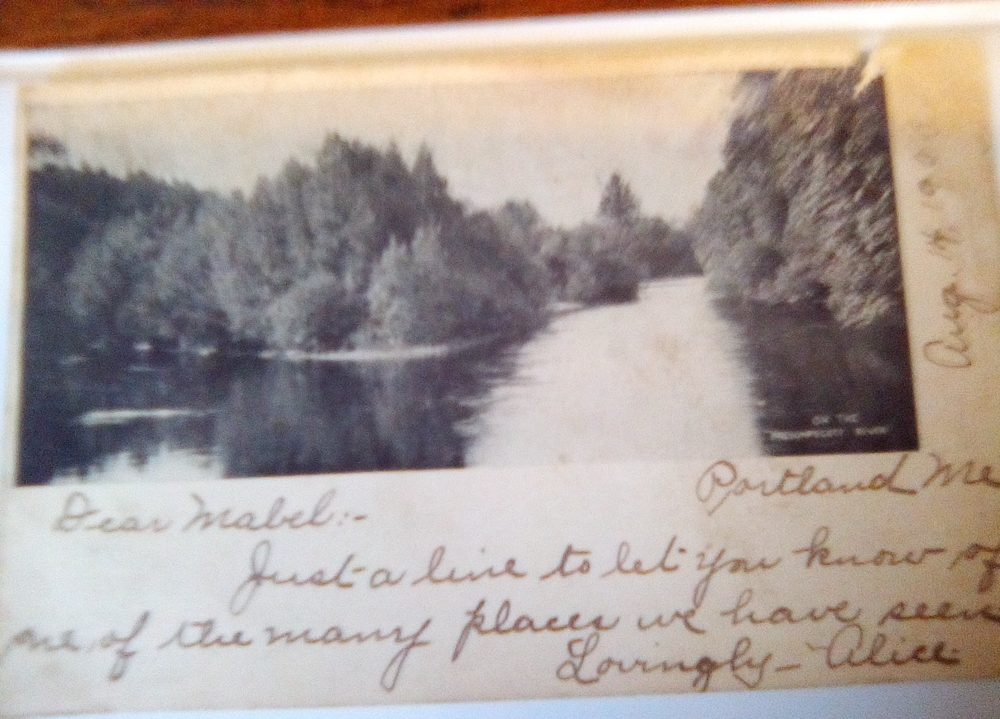 Aug. 14 19
ON THE
PRESUMPSCOT RIVER
Portland Me
Dear Mabel:-
Just a line to let you know of
one of the many places we have seen
Lovingly - Alice.